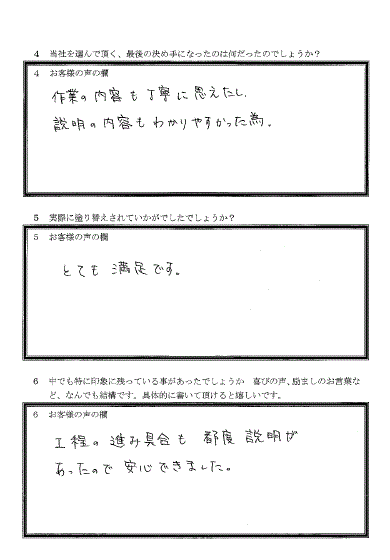 4 当社を選んで頂く、最後の決め手になったのは何だったのでしょうか？
4 お客様の声の欄
作業の内容も丁寧に思えたし、
説明の内容もわかりやすかった為。
5 実際に塗り替えされていかがでしたでしょうか？
5 お客様の声の欄
とても満足です。
6 中でも特に印象に残っている事があったでしょうか 喜びの声、励ましのお言葉な
ど、なんでも結構です。具体的に書いて頂けると嬉しいです。
6 お客様の声の欄
工程の進み具合も都度説明が
あったので安心できました。